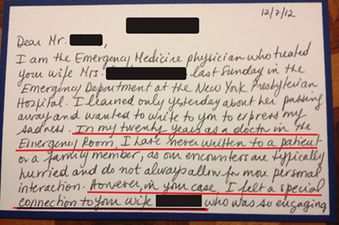 12/7/12
Dear Mr.
I am the Emergency Medicine physician who treated
your wife Mrs. last Sunday in the
Emergency Department at the New York Presbyterian
Hospital. I learned only yesterday about her passing
away and wanted to write to you to express my
sadness. In my twenty years as a doctor in the
Emergency Room, I have never written to a patient
or a family member, as our encounters are typically
hurried and do not always allow for more personal
interaction. However, in your case, I felt a special
connection to your wife who was so engaging